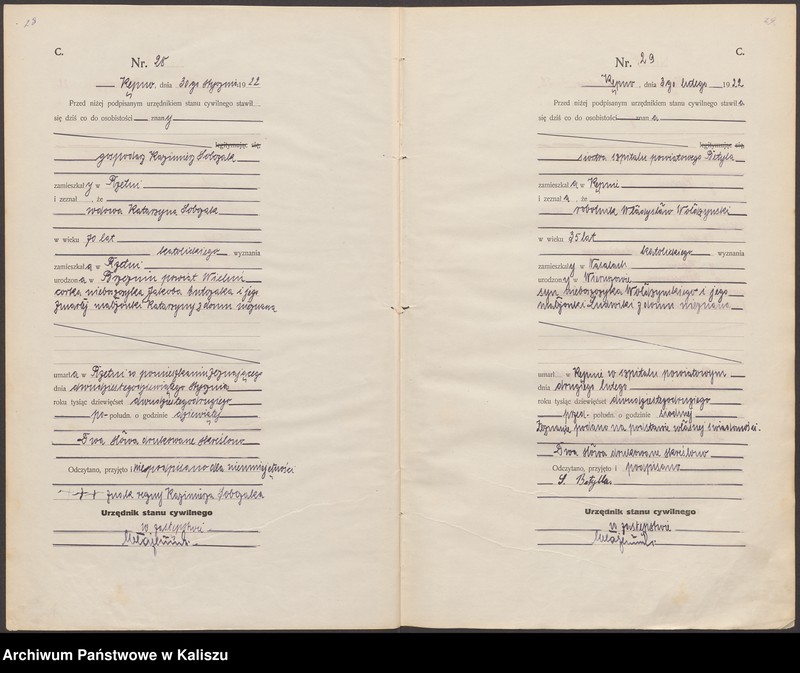 28
C.
Nr. 28
Kępno, dnia 30go stycznia 1922
Przed niżej podpisanym urzędnikiem stanu cywilnego stawił
się dziś co do osobistości znany
legitymując się,
gospodarz Kazimierz Sobczak
zamieszkały w Rzetni
i zeznał, że
wdowa Katarzyna Sobczak
w wieku 70 lat
katolickiego wyznania
zamieszkała w Rzetni
urodzona w powiat Wieluń
córka nieboszczyka Jakóba i jego
zmarłej małżonki Katarzyny z domu nieznana
umarła w Rzetni w pomieszkaniu zeznającego
dnia dwudziestegodziewiątego stycznia
roku tysiąc dziewięćset dwudziestegodrugiego
po- połudn. o godzinie dziewiątej
Dwa słowa drukowane skreślono
Odczytano, przyjęto i niepodpisano dla nieumiejętności
+++ znak ręczny Kazimierza Sobczaka
Urzędnik stanu cywilnego
w zastępstwie
29
C.
Nr. 29
Kępno, dnia 3go lutego 1922
Przed niżej podpisanym urzędnikiem stanu cywilnego stawiła
się dziś co do osobistości znana
legitymując się,
siostra szpitalu powiatowego Botylla
zamieszkała w Kępnie
i zeznała, że
robotnik Władysław
w wieku 35 lat
katolickiego wyznania
zamieszkały w
urodzony w Wieruszowie
syn nieboszczyka i jego
małżonki Ludwiki z domu nieznana
umarł w Kępnie w szpitalu powiatowym
dnia drugiego lutego
roku tysiąc dziewięćset dwudziestegodrugiego
przed- połudn. o godzinie siódmej
Zeznanie podano na podstawie własnej świadomości.
Dwa słowa drukowane skreślono
Odczytano, przyjęto i podpisano
S. Botylla
Urzędnik stanu cywilnego
w zastępstwie
Archiwum Państwowe w Kaliszu